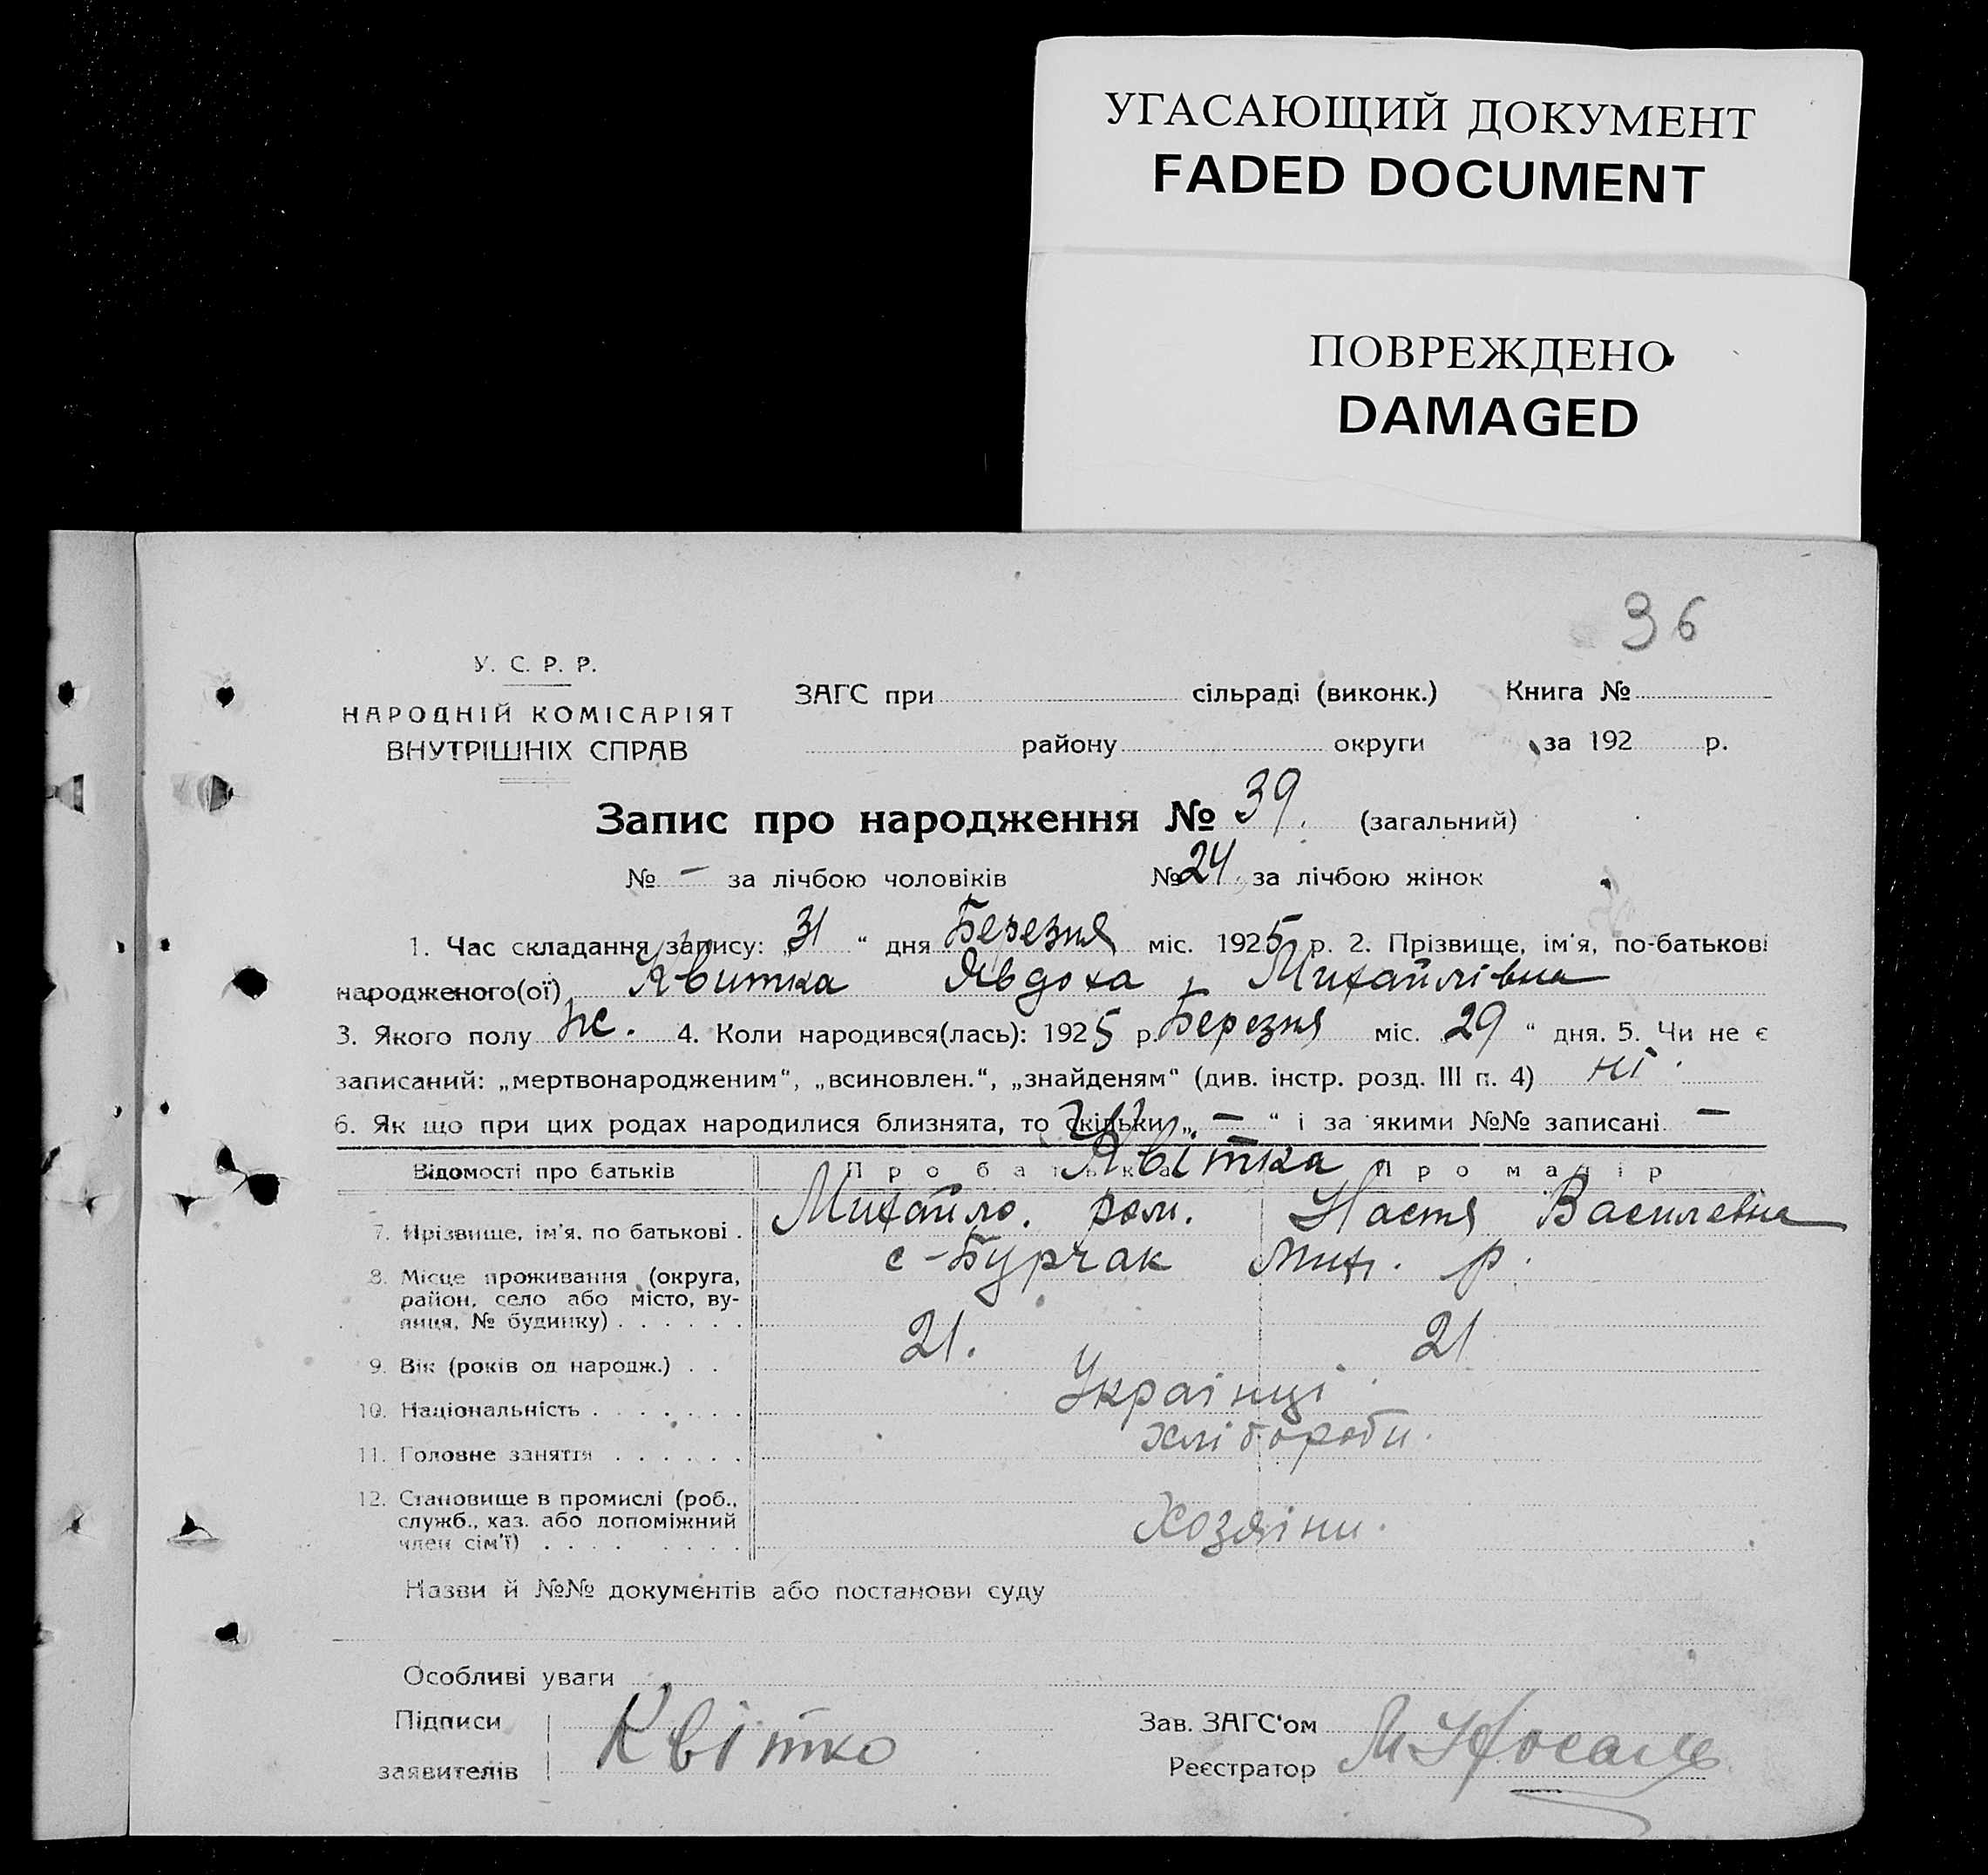 УГАСАЮЩИЙ ДОКУМЕНТ
FADED DOCUMENT
ПОВРЕЖДЕНО
DAMAGED
36
У. С. Р. Р.
НАРОДНІЙ КОМІСАРІЯТ
ВНУТРІШНІХ СПРАВ
ЗАГС при сільраді (виконк.) Книга №
району округи за 192 р.
Запис про народження № 39. (загальний)
№ – за лічбою чоловіків № 24. за лічбою жінок
1. Час складання запису: „31“ дня Березня міс. 1925 р. 2. Прізвище, ім'я, по-батькові
народженого(ої) Квитка Явдоха Михайлівна
3. Якого полу же. 4. Коли народився(лась): 1925 р. Березня міс. „29“ дня. 5. Чи не є
записаний: „мертвонародженим“, „всиновлен.“, „знайденям“ (див. інстр. розд. III п. 4) ні.
6. Як що при цих родах народилися близнята, то скільки „–“ і за якими №№ записані –
Відомості про батьків Про батька Про матір
Квітка
7. Прізвище, ім'я, по батькові . Михайло. ром. Настя Василевна
8. Місце проживання (округа, район, село або місто, вулиця, № будинку) . . . . . . с-Бурчак Мих. р.
9. Вік (років од народж.) . . 21. 21
10. Національність . . . . . . . Українці
11. Головне заняття . . . . . . Хлібороби.
12. Становище в промислі (роб., служб., хаз. або допоміжний член сім'ї) . . . . . . . . Хозяіни.
Назви й №№ документів або постанови суду
Особливі уваги
Підписи заявителів Квітко
Зав. ЗАГС'ом
Реєстратор